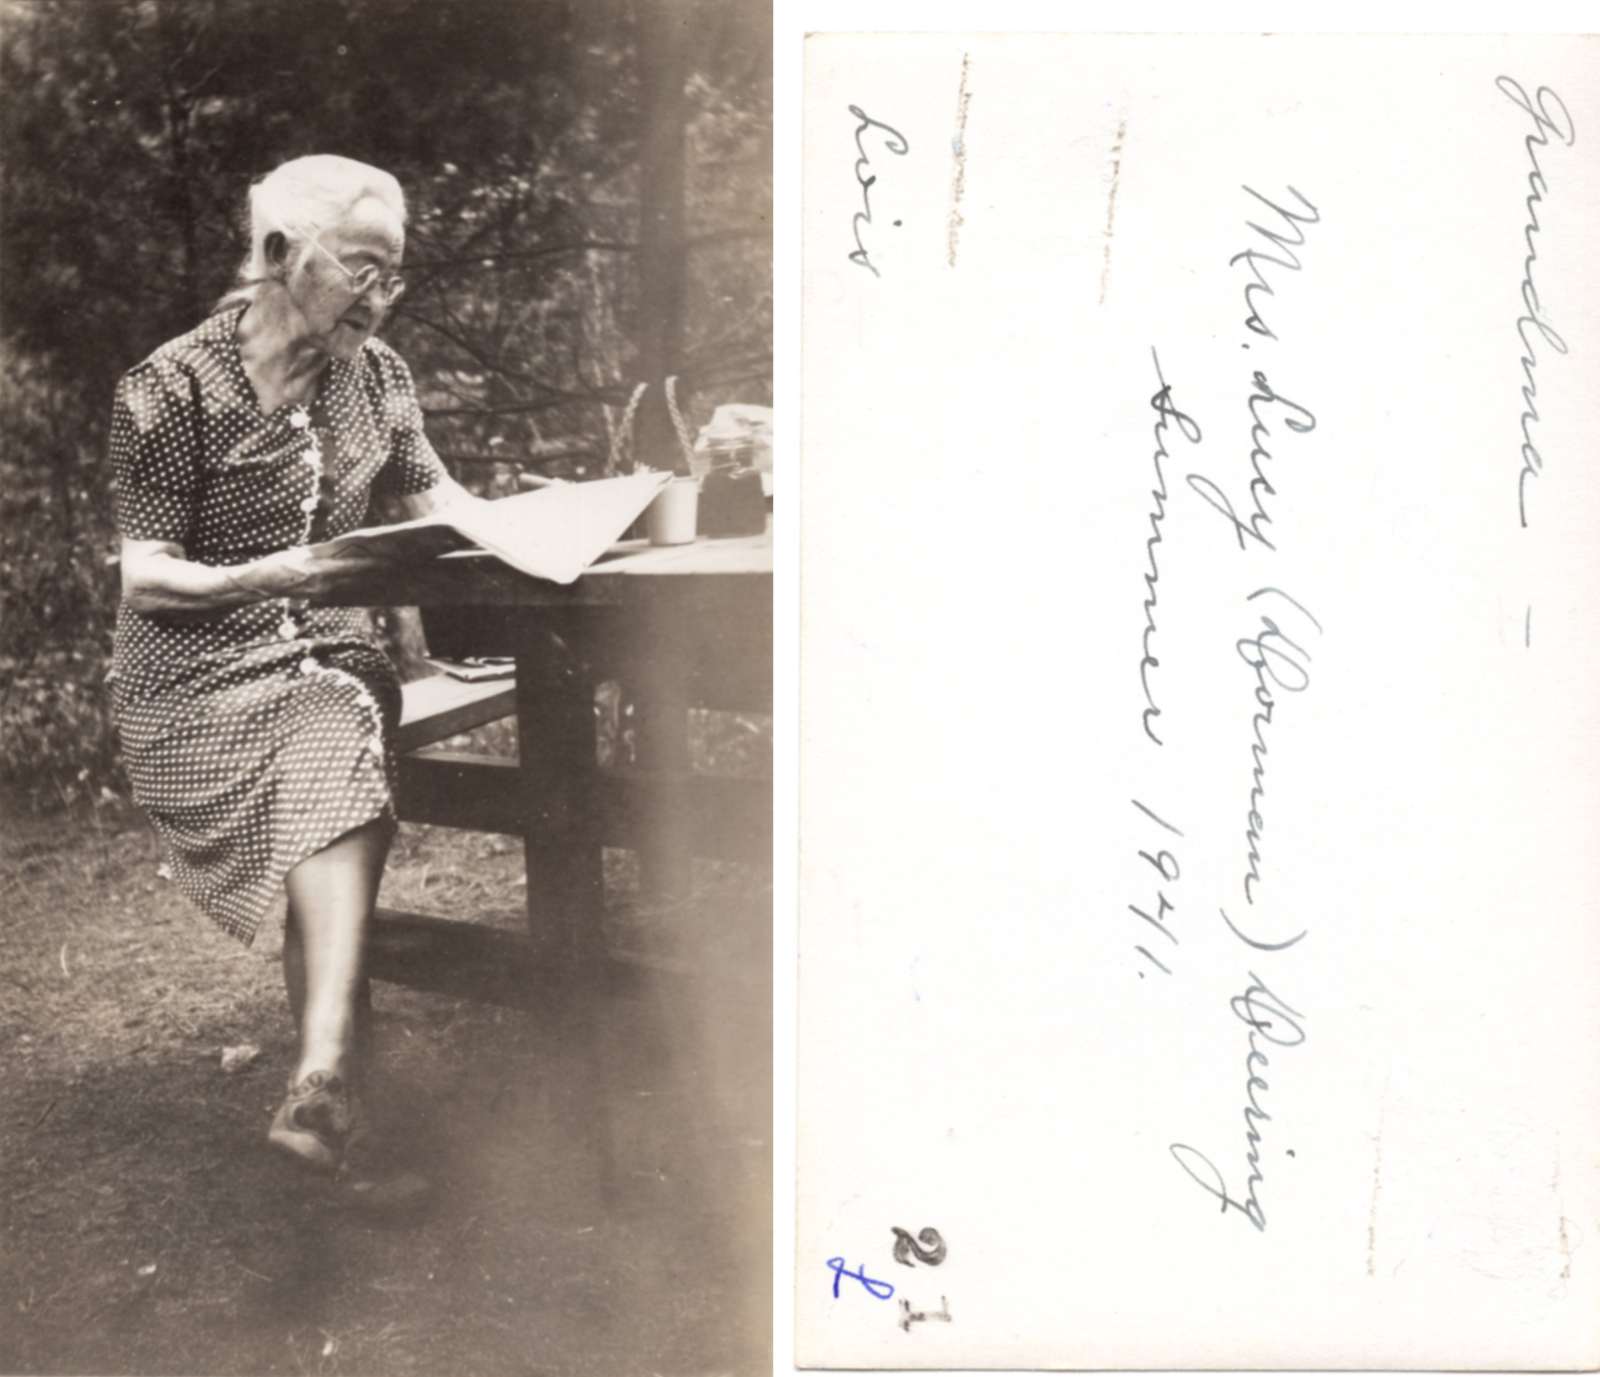 Grandma —
Mrs. Lucy (Dorman) Deering
Summer 1941.
Lois
21
L